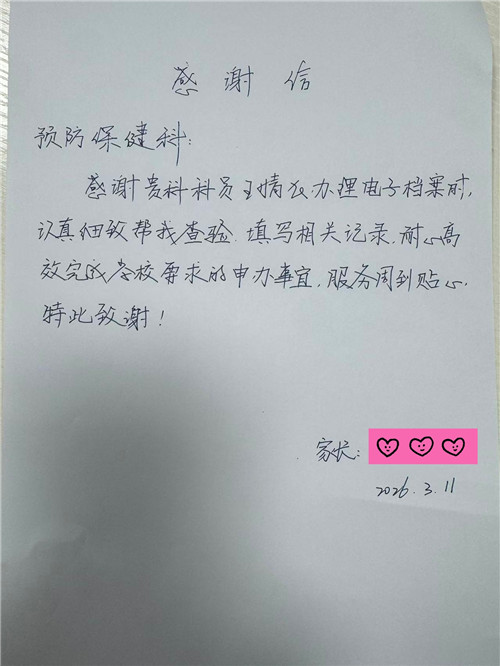 感谢信
预防保健科:
感谢贵科科员王情在办理电子档案时,
认真细致帮我查验、填写相关记录,耐心高
效完成学校要求的申办事宜,服务周到贴心,
特此致谢!
家长:
2026.3.11